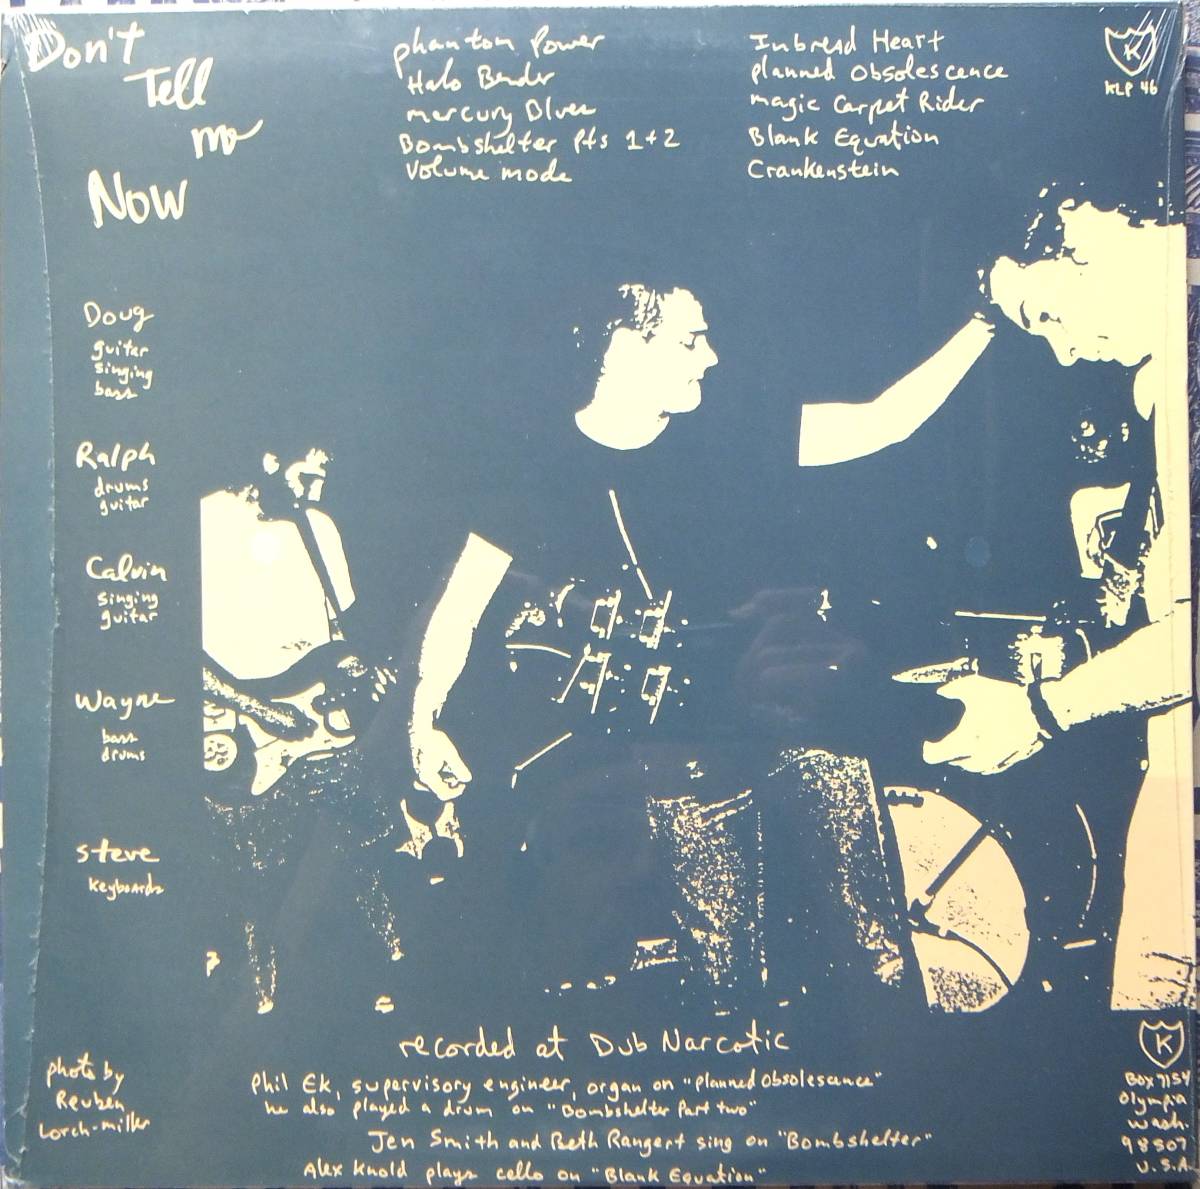 Don't
Tell
me
Now
phantom Power
Halo Bender
mercury Blues
Bombshelter Pts 1+2
Volume mode
Inbread Heart
planned obsolescence
magic Carpet Rider
Blank Equation
Crankenstein
K
KLP 46
Doug
guitar
singing
bass
Ralph
drums
guitar
Calvin
singing
guitar
Wayne
bass
drums
Steve
keyboards
recorded at Dub Narcotic
Phil Ek, supervisory engineer, organ on "planned Obsolescence"
he also played a drum on "Bombshelter Part two"
Jen Smith and Beth Rangert sing on "Bombshelter"
Alex Knold plays cello on "Blank Equation"
photo by
Reuben
Lorch-miller
K
Box 7154
Olympia
Wash.
98507
U.S.A.